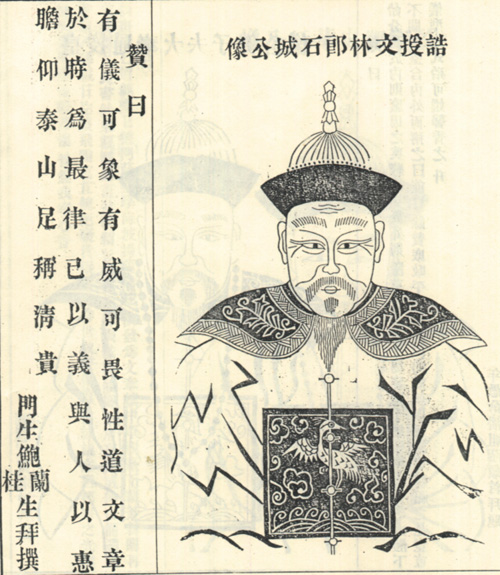 誥授文林郎石城公像
贊曰
有儀可象有威可畏性道文章
於時爲最律已以義與人以惠
瞻仰泰山足稱清貴
門生鮑蘭桂生拜撰